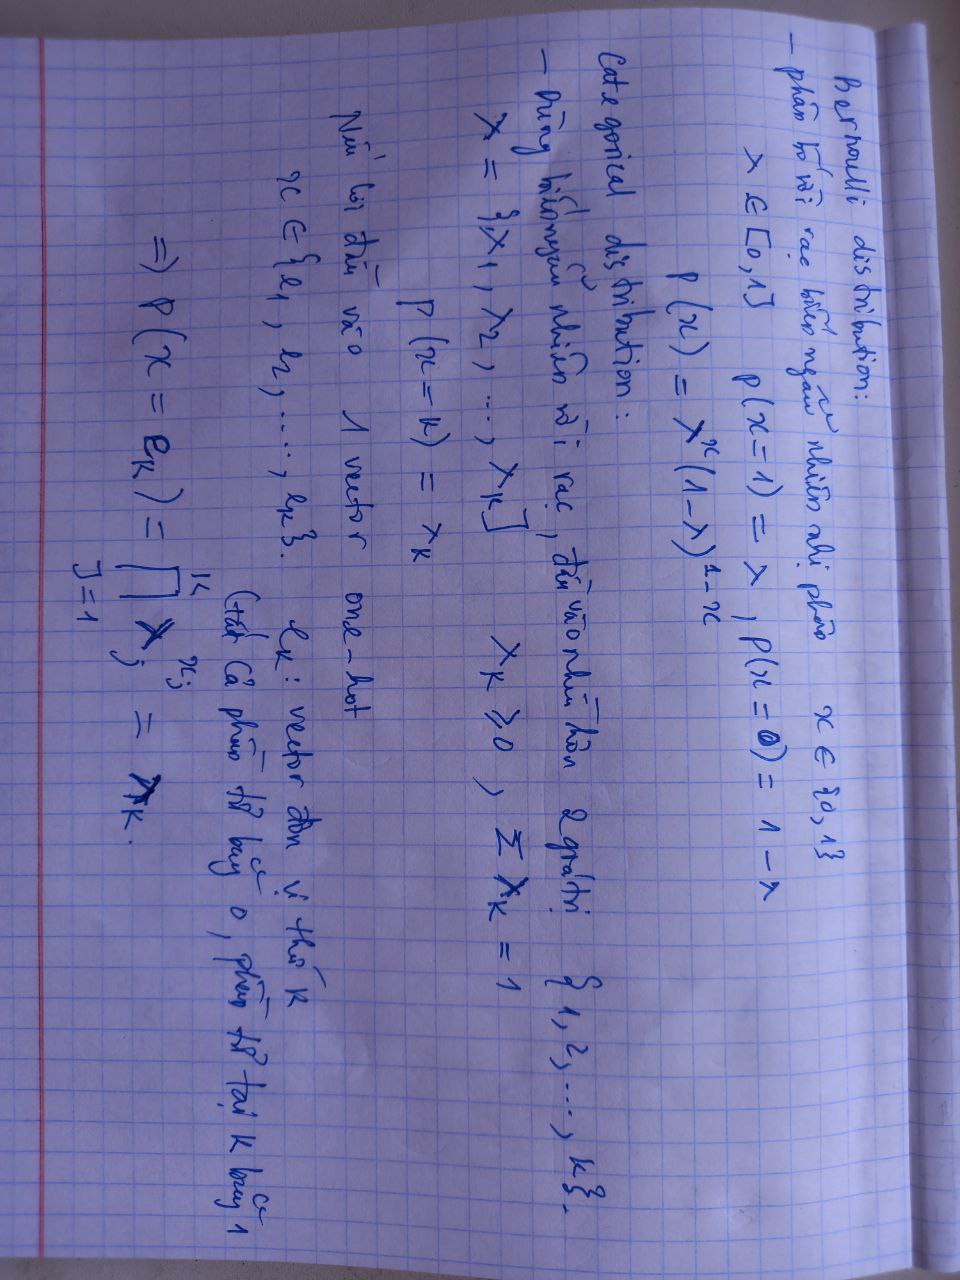 Bernoulli distribution:
- phân bố rời rạc biến ngẫu nhiên nhị phân x ∈ {0,1}
λ ∈ [0,1] p(x=1) = λ, p(x=0) = 1-λ
p(x) = λ^x (1-λ)^{1-x}
Categorical distribution:
- Dùng biến ngẫu nhiên rời rạc, đầu vào nhiều hơn 2 giá trị {1, 2, ..., K}.
λ = {λ_1, λ_2, ..., λ_K] λ_K ⩾ 0, Σ λ_K = 1
p(x=K) = λ_K
Nếu đầu vào 1 vector one-hot
x ∈ {e_1, e_2, ...., e_K}. e_K: vector đơn vị thứ K
(tất cả phần tử bằng 0, phần tử tại K bằng 1
=> P(x = e_K) = ∏_{J=1}^{K} λ_j^{x_j} = λ_K.